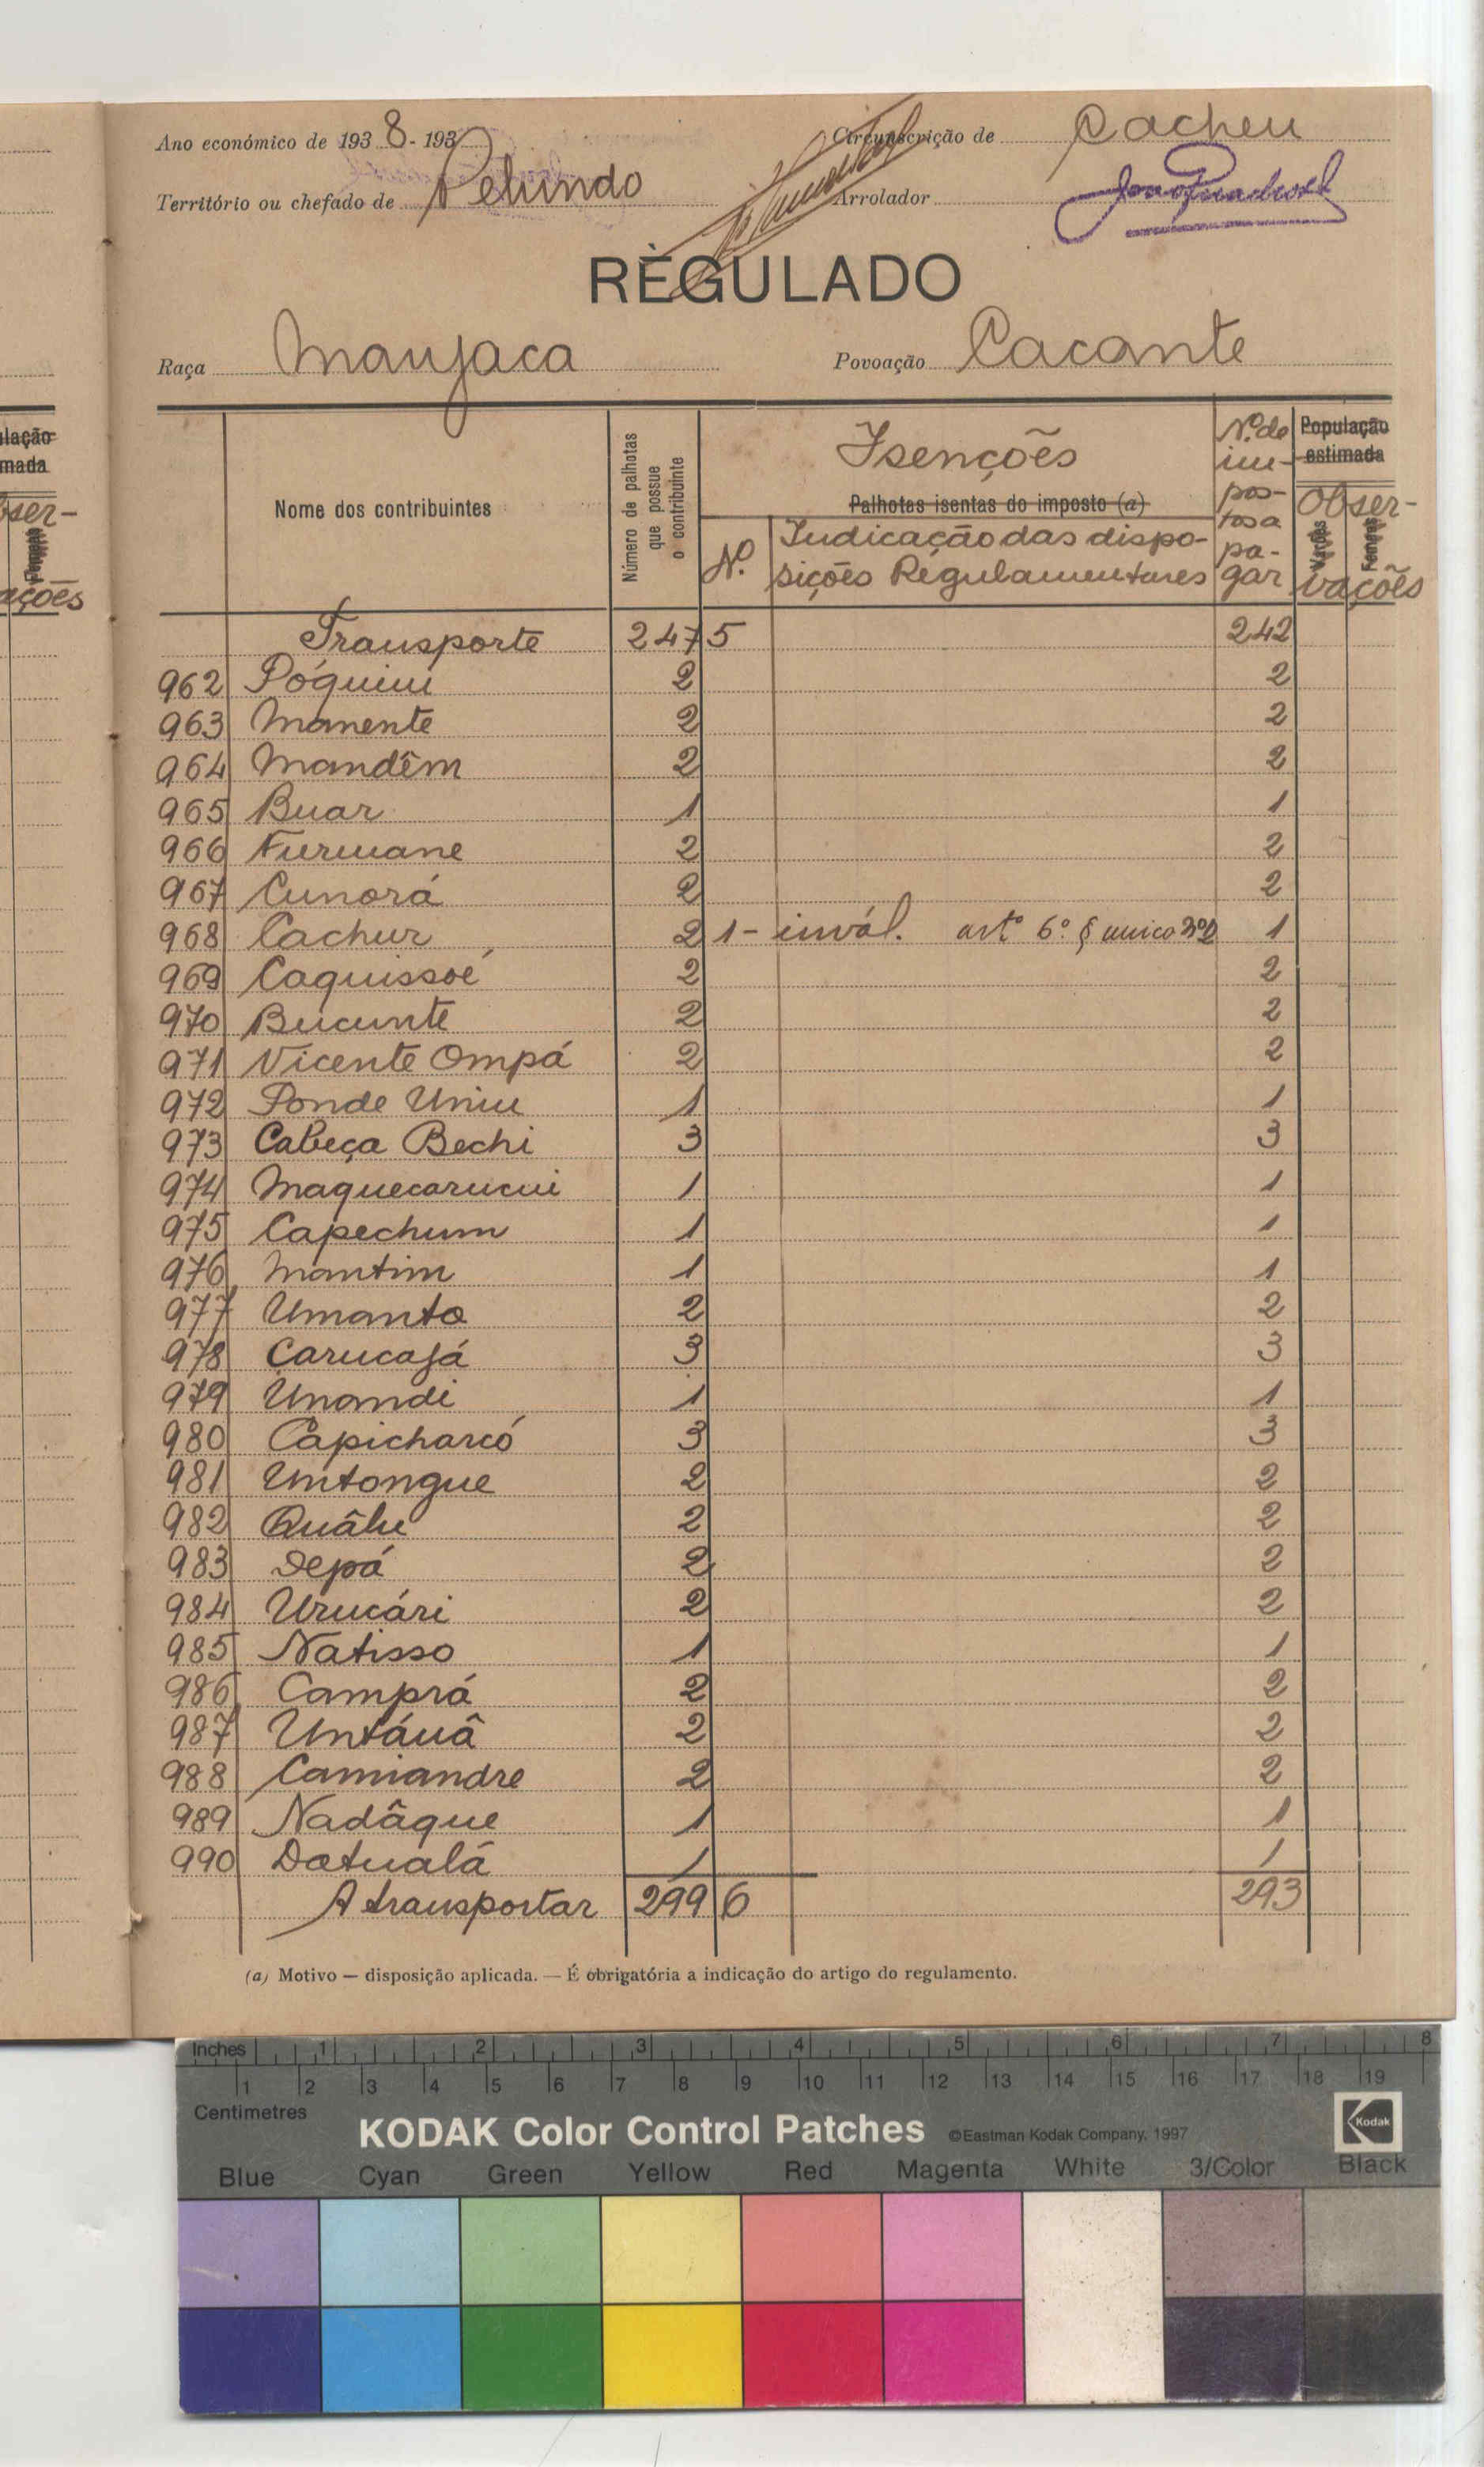 Ano económico de 193 8 - 193
Circunscrição de Cacheu
Território ou chefado de Pelundo
Arrolador
RÈGULADO
Raça Manjaca
Povoação Cacante
Nome dos contribuintes
Número de palhotas que possue o contribuinte
Isenções
Palhotas isentas do imposto (a)
Nº.
Indicação das dispo-
sições Regulamentares
Nº. de
im-
pos-
tos a
pa-
gar
População
estimada
Obser-
Varões
Femeas
vações
lação
mada
ser-
ações
Transporte 247 5 242
962 Póquim 2 2
963 Manente 2 2
964 Mandêm 2 2
965 Buar 1 1
966 Furmane 2 2
967 Cunorá 2 2
968 Cachur 2 1 - invál. artº 6º § unico 1
969 Caquissoé 2 2
970 Bucunte 2 2
971 Vicente Ompá 2 2
972 Ponde Uniu 1 1
973 Cabeça Bechi 3 3
974 Maquecarucui 1 1
975 Capechum 1 1
976 Mantim 1 1
977 Umanta 2 2
978 Carucajá 3 3
979 Unandi 1 1
980 Capicharcó 3 3
981 Untongue 2 2
982 Quâlu 2 2
983 Depá 2 2
984 Urucári 2 2
985 Natisso 1 1
986 Camprá 2 2
987 Untáuâ 2 2
988 Camiandre 2 2
989 Nadâque 1 1
990 Datualá 1 1
A transportar 299 6 293
(a) Motivo — disposição aplicada. — É obrigatória a indicação do artigo do regulamento.
Inches 1 2 3 4 5 6 7 8
1 2 3 4 5 6 7 8 9 10 11 12 13 14 15 16 17 18 19
Centimetres
KODAK Color Control Patches ©Eastman Kodak Company, 1997 Kodak
Blue Cyan Green Yellow Red Magenta White 3/Color Black